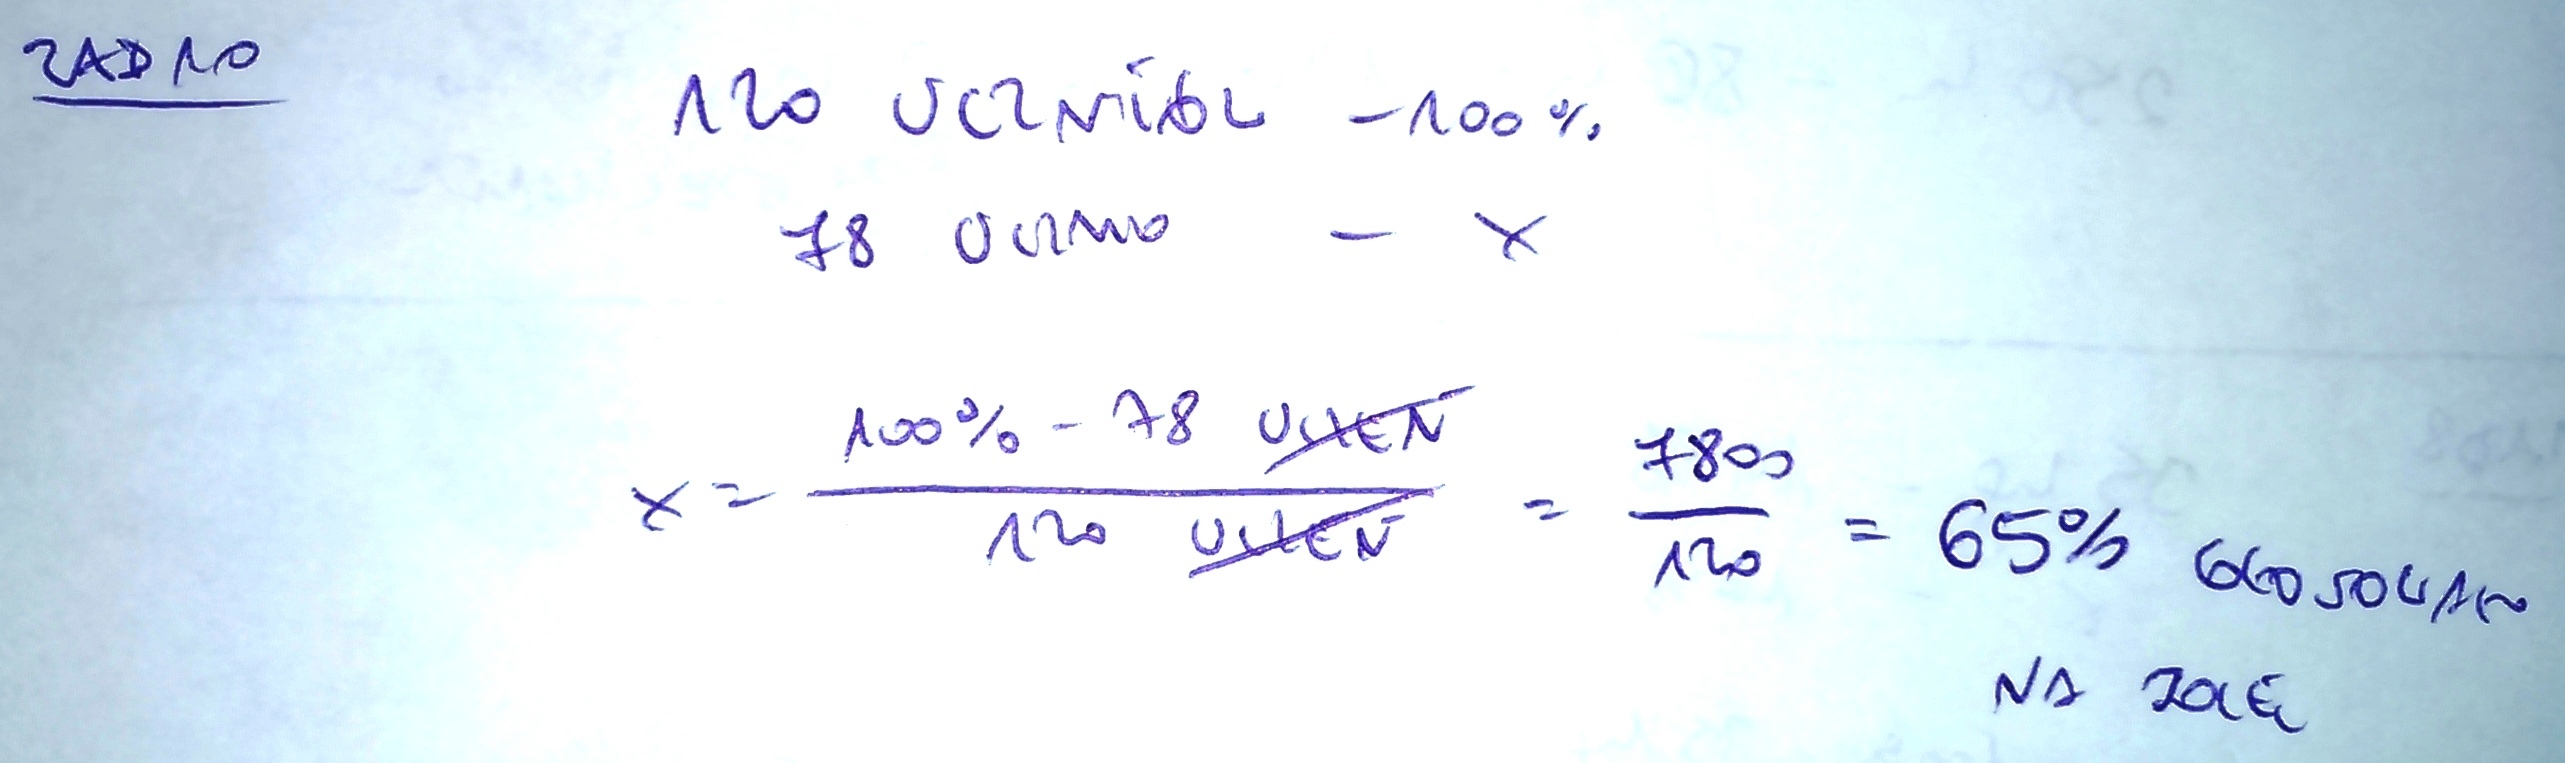 ZAD 10
120 UCZNIÓW – 100%
78 UCZNIÓW – X
X = 100% - 78 UCZEŃ / 120 UCZEŃ = 7800 / 120 = 65% GŁOSOWAŁO
NA ZOIĘ